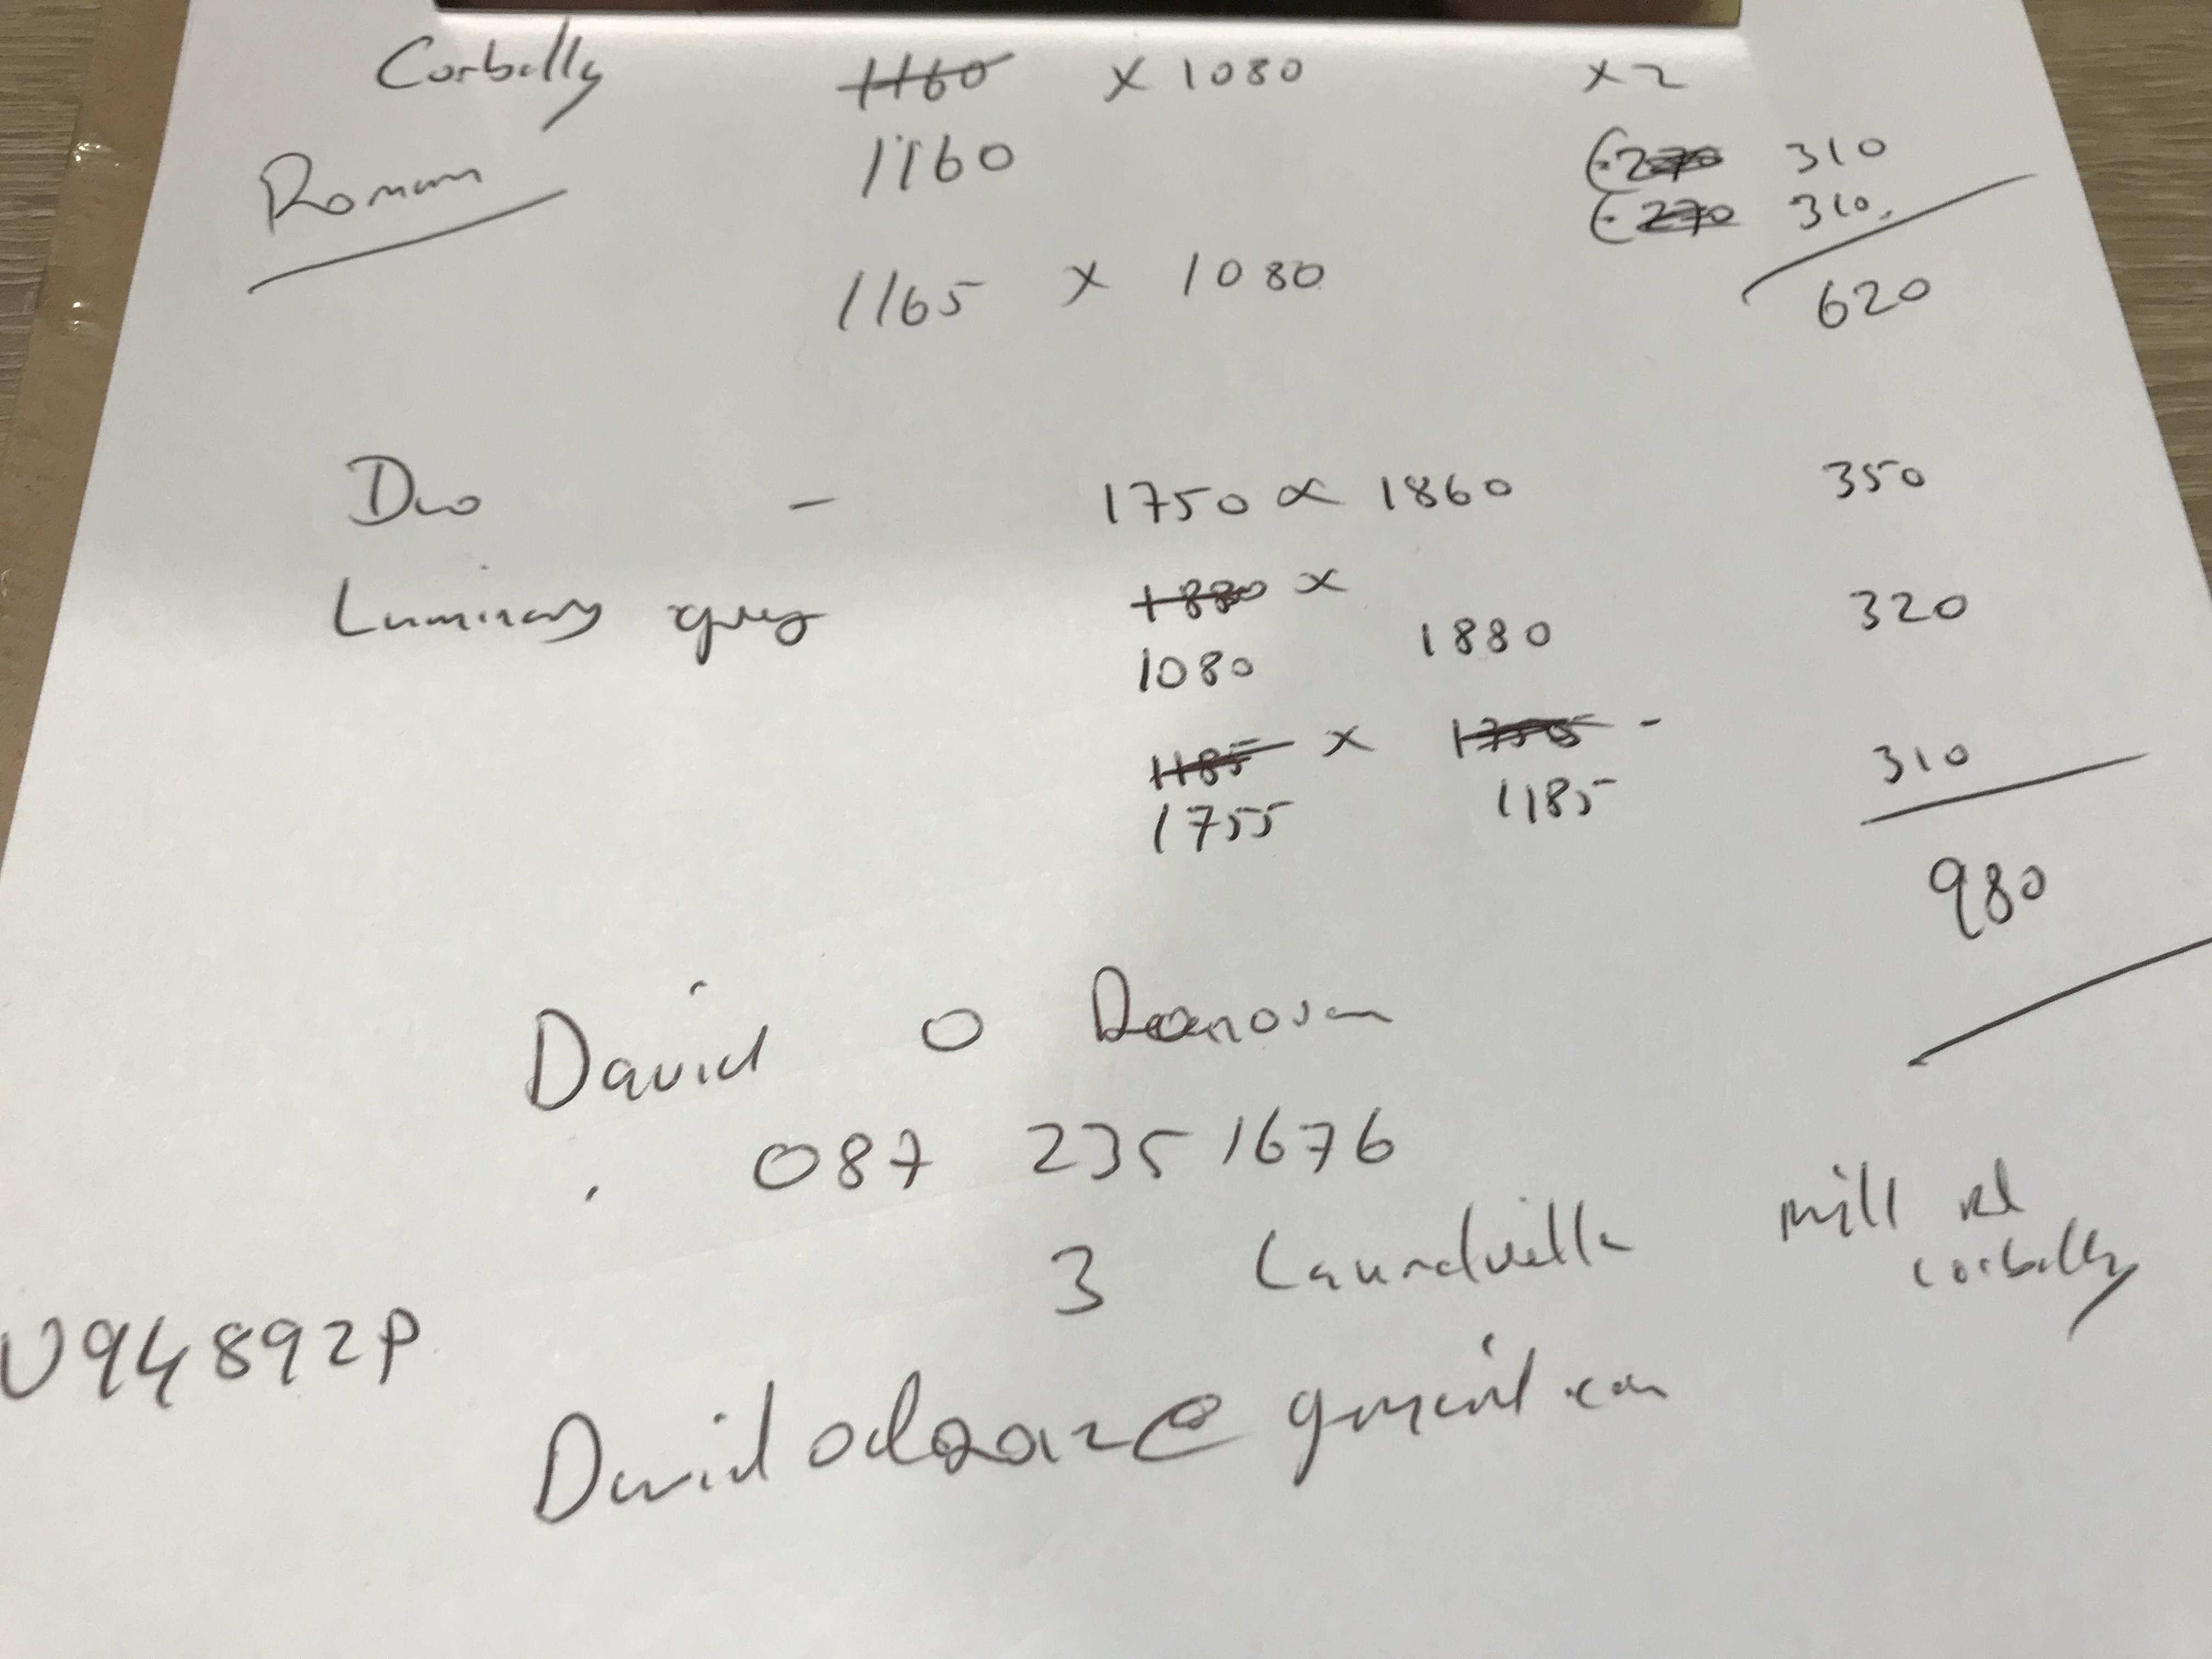 Corbally 1160 x 1080 x 2
Roman 1160 €270 310
€270 310.
1165 x 1080 620
Duo - 1750 x 1860 350
Luminary grey 1880 x 320
1080 1880
1185 x 1755 - 310
1755 1185
980
David O Donovan
087 235 1676
3 Laundville mill rd
corbally
V94892P
@gmail.com